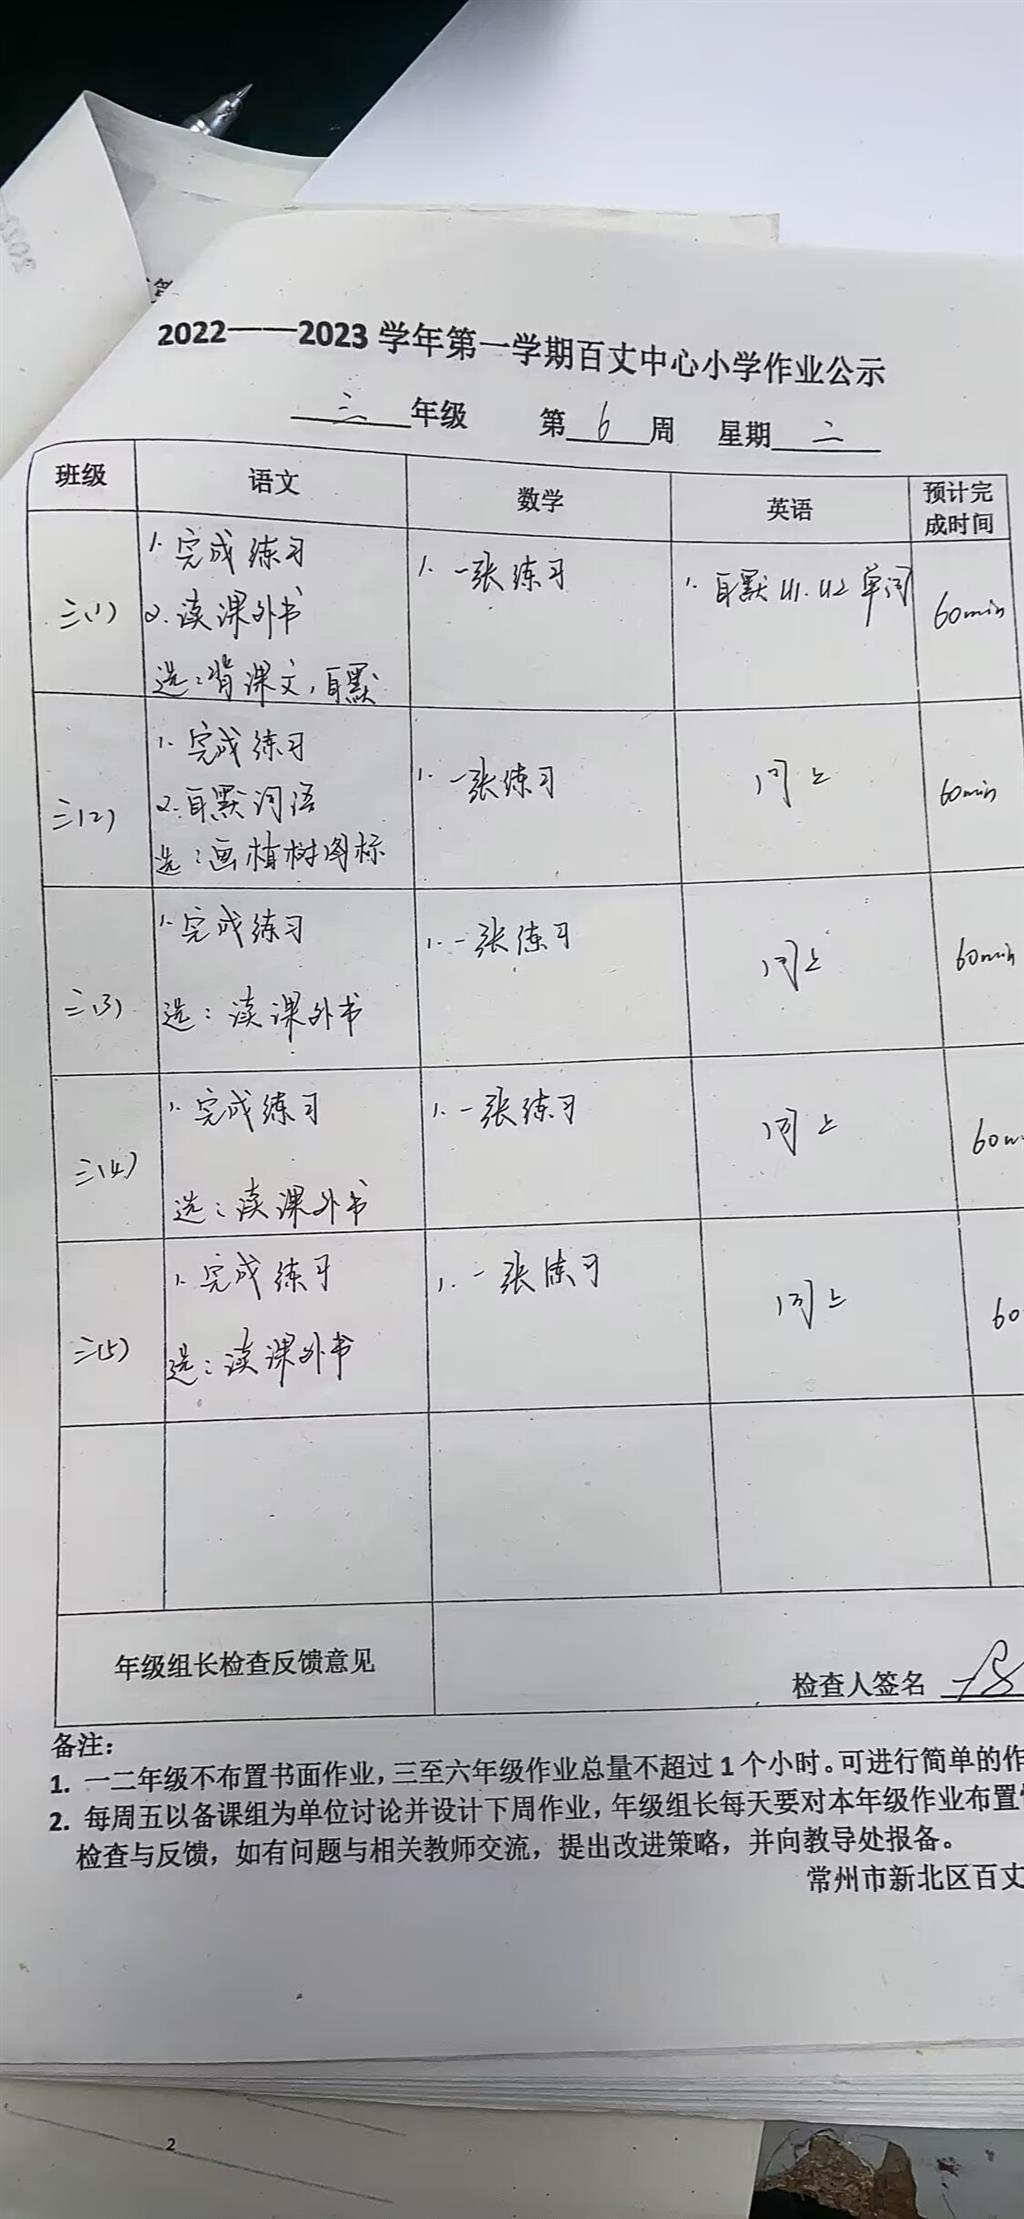 2022——2023 学年第一学期百丈中心小学作业公示
三 年级 第 6 周 星期 二
班级 语文 数学 英语 预计完成时间
三(1)
1. 完成练习
2. 读课外书
选：背课文，自默
1. 一张练习
1. 自默 U1. U2 单词
60min
三(2)
1. 完成练习
2. 自默词语
选：画植树图标
1. 一张练习
同上
60min
三(3)
1. 完成练习
选：读课外书
1. 一张练习
同上
60min
三(4)
1. 完成练习
选：读课外书
1. 一张练习
同上
60
三(5)
1. 完成练习
选：读课外书
1. 一张练习
同上
60
年级组长检查反馈意见
检查人签名
备注：
1. 一二年级不布置书面作业，三至六年级作业总量不超过 1 个小时。可进行简单的作
2. 每周五以备课组为单位讨论并设计下周作业，年级组长每天要对本年级作业布置
检查与反馈，如有问题与相关教师交流，提出改进策略，并向教导处报备。
常州市新北区百丈
2